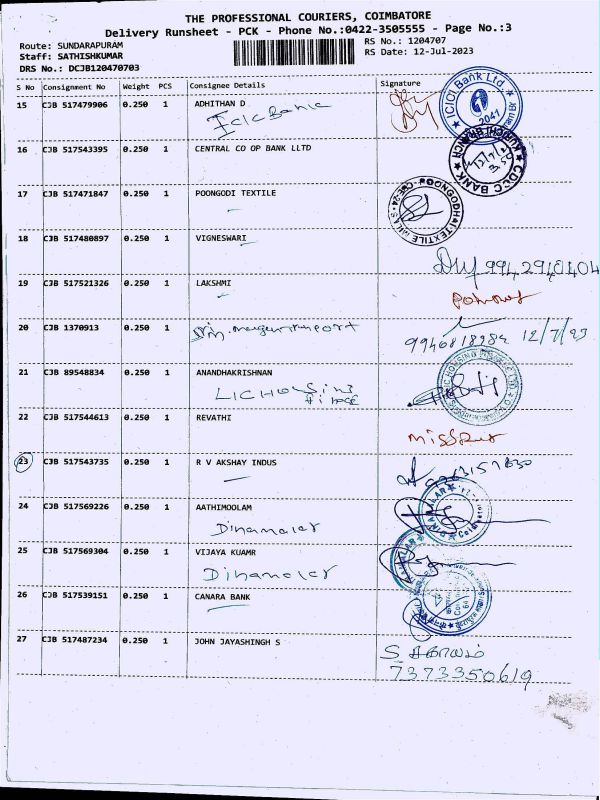 THE PROFESSIONAL COURIERS, COIMBATORE
Delivery Runsheet - PCK - Phone No.:0422-3505555 - Page No.:3
Route: SUNDARAPURAM
RS No.: 1204707
Staff: SATHISHKUMAR
RS Date: 12-Jul-2023
DRS No.: DCJB120470703
S No Consignment No Weight PCS Consignee Details Signature
15 CJB 517479906 0.250 1 ADHITHAN D
ICIC Bank
ICICI Bank Ltd.
2041
16 CJB 517543395 0.250 1 CENTRAL CO OP BANK LLTD
CDCC BANK
17 CJB 517471847 0.250 1 POONGODI TEXTILE
POONGODHAI TEXTILE MILLS
CBE-24
18 CJB 517480897 0.250 1 VIGNESWARI
9942940404
19 CJB 517521326 0.250 1 LAKSHMI
20 CJB 1370913 0.250 1
9946818982 12/7/23
21 CJB 89548834 0.250 1 ANANDHAKRISHNAN
LIC Housing
22 CJB 517544613 0.250 1 REVATHI
23 CJB 517543735 0.250 1 R V AKSHAY INDUS
24 CJB 517569226 0.250 1 AATHIMOOLAM
Dinamalar
DINAMALAR
25 CJB 517569304 0.250 1 VIJAYA KUAMR
Dinamalar
26 CJB 517539151 0.250 1 CANARA BANK
27 CJB 517487234 0.250 1 JOHN JAYASHINGH S
7373350619